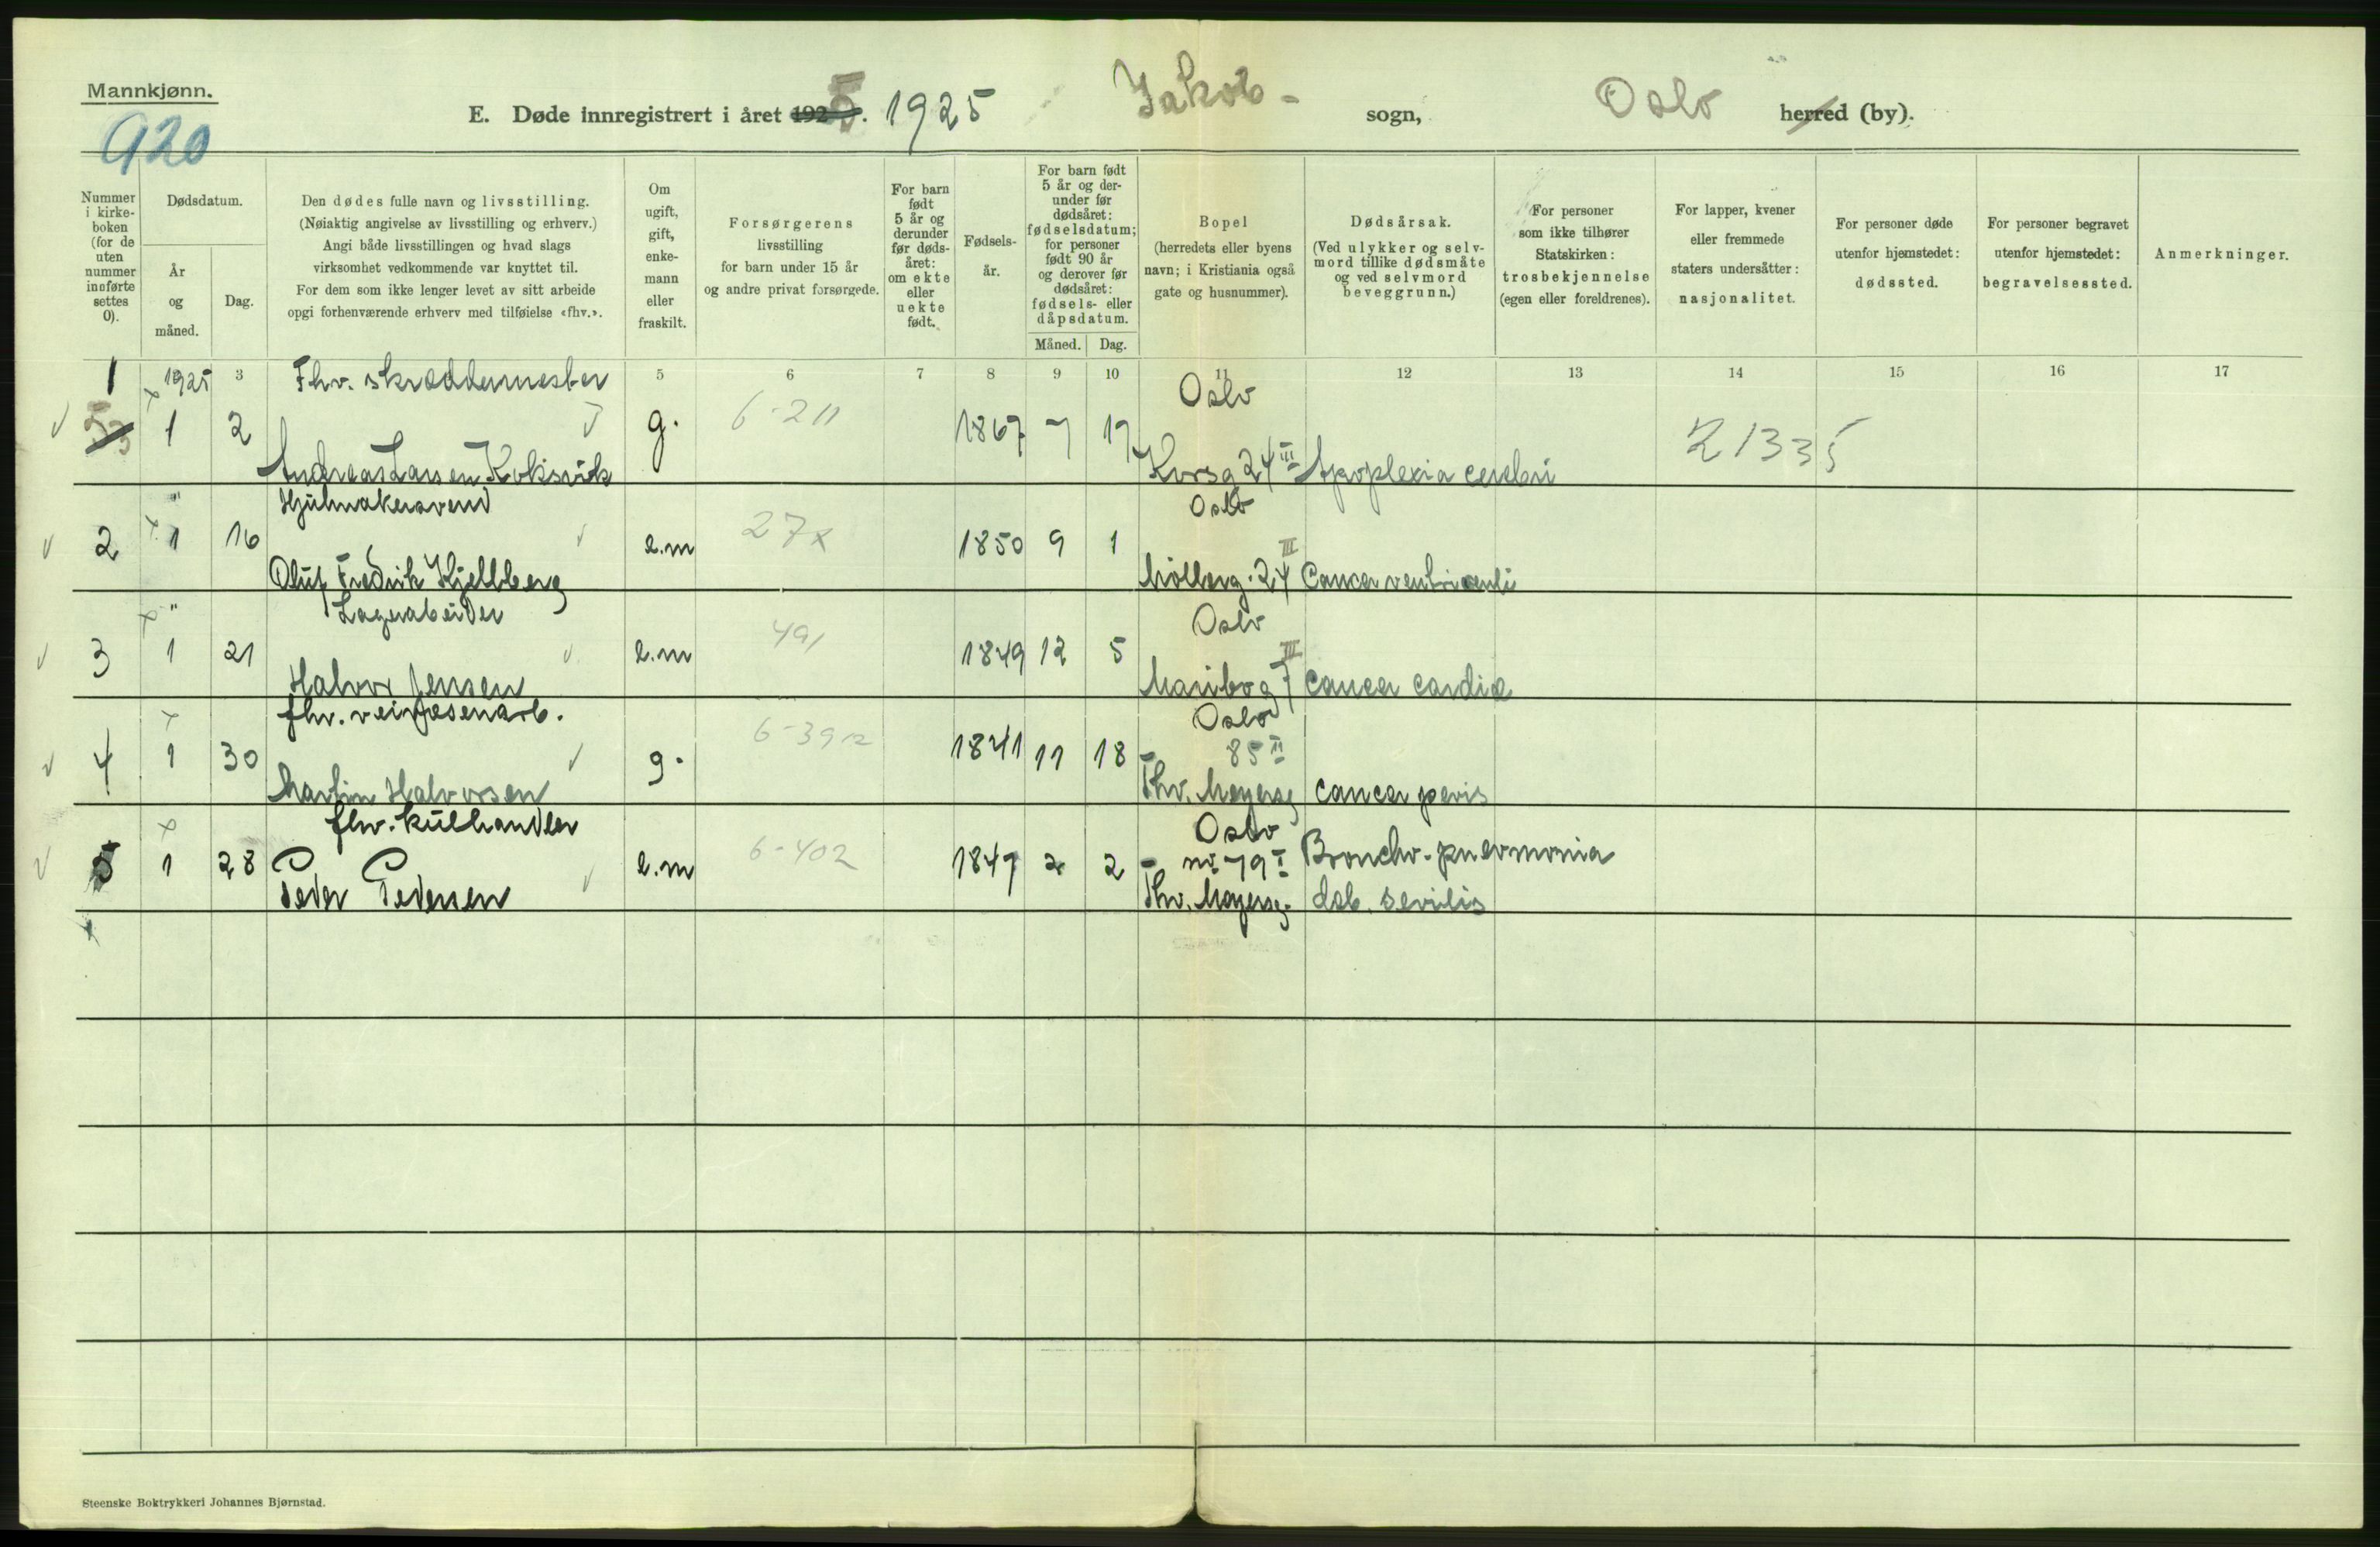 Mannkjønn.
920
E. Døde innregistrert i året 1925. 1925 Jakob - sogn, Oslo herred (by).
Nummer i kirke-boken (for de uten nummer innførte settes 0).
Dødsdatum.
År og måned.
Dag.
Den dødes fulle navn og livsstilling.
(Nøiaktig angivelse av livsstilling og erhverv.)
Angi både livsstillingen og hvad slags
virksomhet vedkommende var knyttet til.
For dem som ikke lenger levet av sitt arbeide
opgi forhenværende erhverv med tilføielse «fhv.».
Om ugift, gift, enke-mann eller fraskilt.
Forsørgerens
livsstilling
for barn under 15 år
og andre privat forsørgede.
For barn født 5 år og derunder før døds-året: om ekte eller uekte født.
Fødsels-år.
For barn født 5 år og der-under før dødsåret: fødselsdatum; for personer født 90 år og derover før dødsåret: fødsels- eller dåpsdatum.
Måned. Dag.
Bopel
(herredets eller byens
navn; i Kristiania også
gate og husnummer).
Dødsårsak.
(Ved ulykker og selv-
mord tillike dødsmåte
og ved selvmord
beveggrunn.)
For personer
som ikke tilhører
Statskirken:
trosbekjennelse
(egen eller foreldrenes).
For lapper, kvener
eller fremmede
staters undersåtter:
nasjonalitet.
For personer døde
utenfor hjemstedet:
dødssted.
For personer begravet
utenfor hjemstedet:
begravelsessted.
Anmerkninger.
1 1925 3 Fhv. skræddermester 5 6 7 8 9 10 11 12 13 14 15 16 17
Oslo
1 2 g. 6-211 1867 7 17 21335
Andreas Larsen Koksvik Korsg 24 III Apoplexia cerebri
" Hjulmakersvend Oslo
2 1 16 e.m 27x 1850 9 1
Oluf Fredrik Kjellberg Møllerg. 24 III Cancer ventriculi
" Lagerarbeider Oslo
3 1 21 e.m 491 1849 12 5
Halvor Jensen Maribog 7 III cancer cardia
fhv. veivæsenarb. Oslo
4 1 30 g. 6-392 1841 11 18 - 85 II
Martin Halvorsen Thv. Meyersg cancer penis
fhv. kulhandler Oslo
5 1 28 e.m 6-402 1847 2 2 - no 79 I Broncho-pneumonia
Peder Pedersen Thv. Meyersg. deb. senilis
Steenske Boktrykkeri Johannes Bjørnstad.